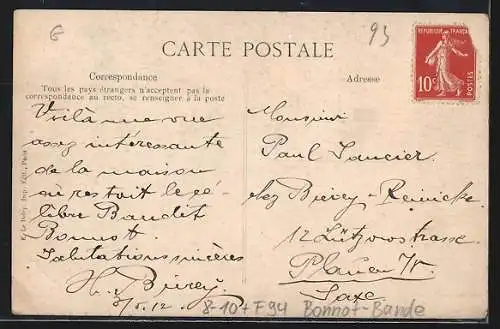 6
93
CARTE POSTALE
REPUBLIQUE FRANÇAISE
10c
POSTES
Correspondance
Adresse
Tous les pays étrangers n'acceptent pas la
correspondance au recto, se renseigner à la poste
Voilà une vue
assez intéressante
de la maison
où restait le cé-
lèbre Bandit
Bonnot
Salutations sincères
H. Birey
5/5.12
Monsieur
Paul
chez Birey-Reinicke
12 Lützowstrasse
Plauen i/V.
Saxe
8-10+F94 Bonnot-Bande